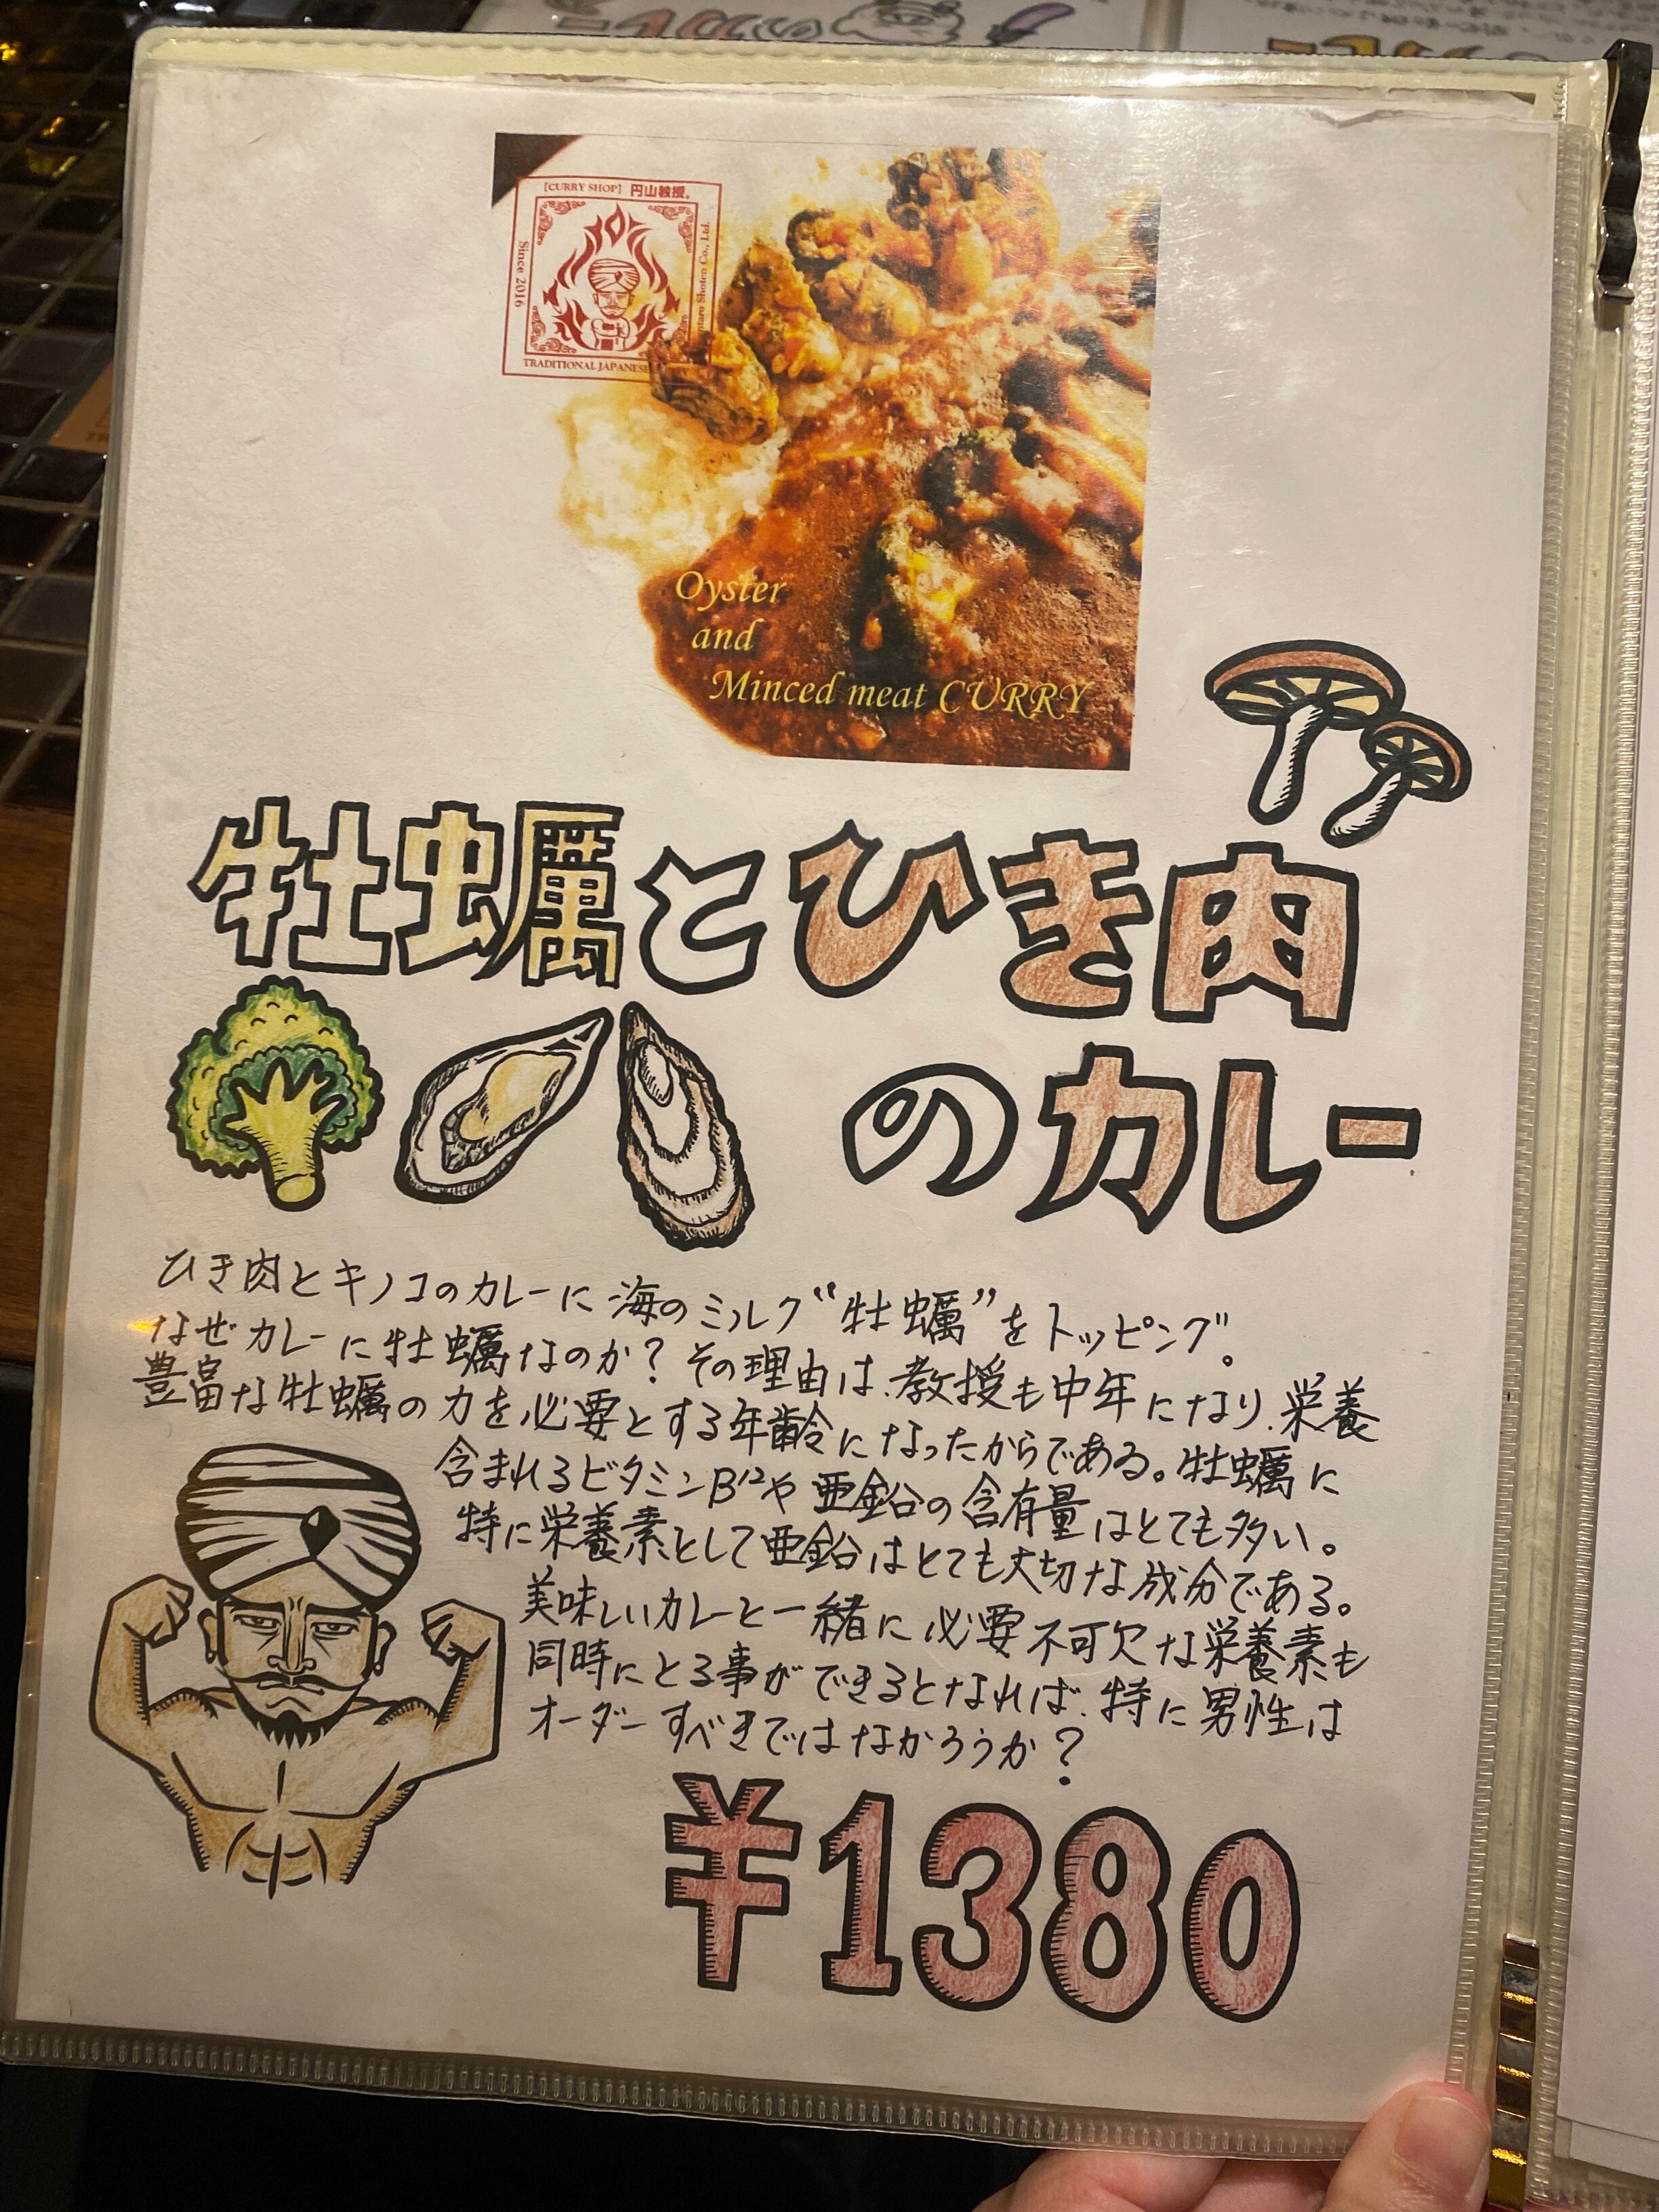 [CURRY SHOP] 円山教授。
Since 2016
Shoten Co., Ltd.
TRADITIONAL JAPANESE
Oyster
and
Minced meat CURRY
牡蠣とひき肉
のカレー
ひき肉とキノコのカレーに海のミルク“牡蠣”をトッピング。
なぜカレーに牡蠣なのか?その理由は、教授も中年になり、栄養
豊富な牡蠣の力を必要とする年齢になったからである。牡蠣に
含まれるビタミンB12や亜鉛の含有量はとても多い。
特に栄養素として亜鉛はとても大切な成分である。
美味しいカレーと一緒に必要不可欠な栄養素も
同時にとる事ができるとなれば、特に男性は
オーダーすべきではなかろうか?
¥1380